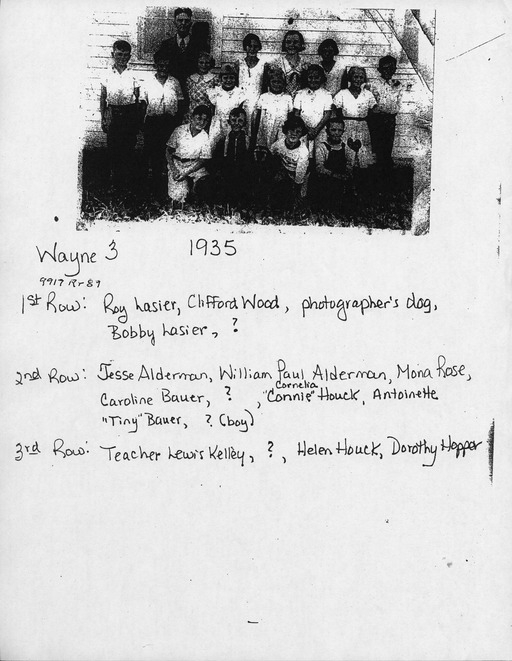 Wayne 3 1935
9917 Rr 89
1st Row: Roy Lasier, Clifford Wood, photographer's dog,
Bobby Lasier, ?
2nd Row: Jesse Alderman, William Paul Alderman, Mona Rose,
Cornelia
Caroline Bauer, ?, "Connie" Houck, Antoinette
"Tiny" Bauer, ? (boy)
3rd Row: Teacher Lewis Kelley, ?, Helen Houck, Dorothy Hopper